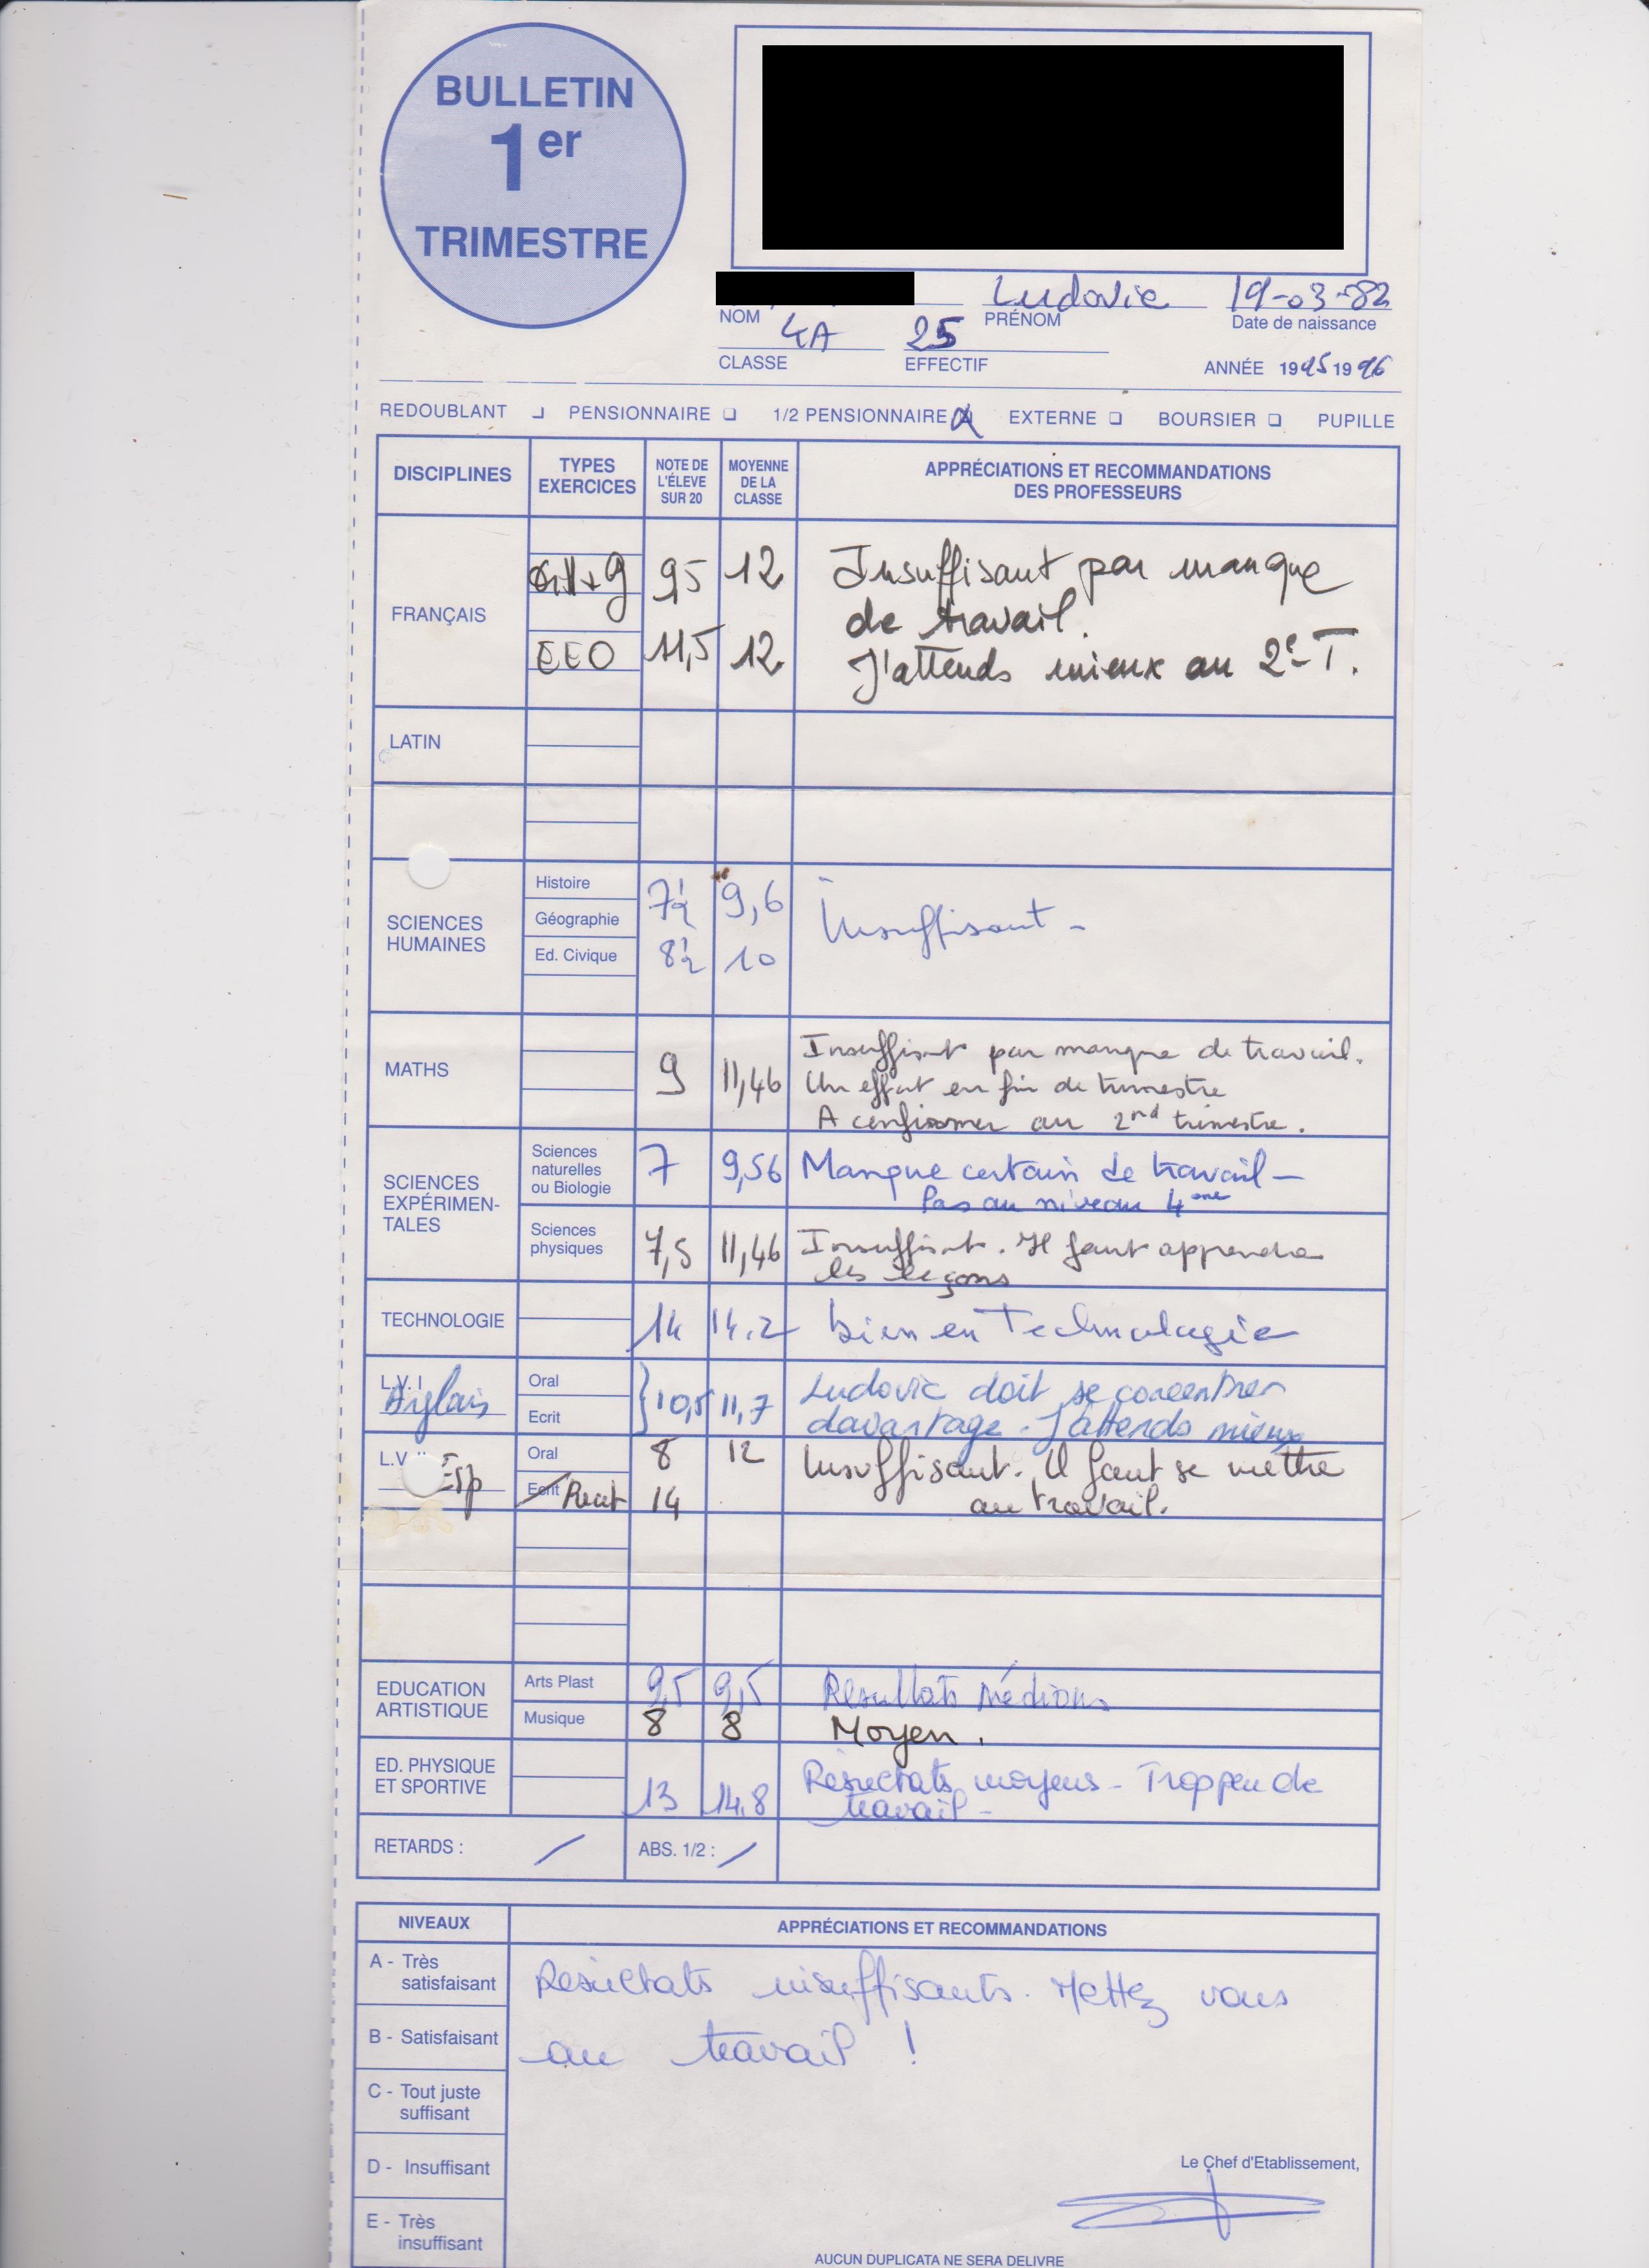 BULLETIN
1er
TRIMESTRE
Ludovic 19-03-82
NOM PRÉNOM Date de naissance
4A 25
CLASSE EFFECTIF ANNÉE 1995 1996
REDOUBLANT PENSIONNAIRE 1/2 PENSIONNAIRE X EXTERNE BOURSIER PUPILLE
DISCIPLINES TYPES EXERCICES NOTE DE L'ÉLEVE SUR 20 MOYENNE DE LA CLASSE APPRÉCIATIONS ET RECOMMANDATIONS DES PROFESSEURS
FRANÇAIS
9,5 12 Insuffisant par manque
de travail.
EEO 11,5 12 J'attends mieux au 2e T.
LATIN
SCIENCES HUMAINES
Histoire
Géographie 7½ 9,6 Insuffisant -
Ed. Civique 8½ 10
MATHS 9 11,46 Insuffisant par manque de travail.
Un effort en fin de trimestre
A confirmer au 2nd trimestre.
SCIENCES EXPÉRIMEN-TALES
Sciences naturelles ou Biologie 7 9,56 Manque certain de travail -
Pas au niveau 4eme
Sciences physiques 7,5 11,46 Insuffisant. Il faut apprendre
les leçons
TECHNOLOGIE 14 14.2 bien en Technologie
L.V. I Anglais Oral Ecrit 10,5 11,7 Ludovic doit se concentrer
davantage - J'attends mieux
L.V. II Esp Oral 8 12 Insuffisant. Il faut se mettre
Ecrit 14 au travail.
EDUCATION ARTISTIQUE
Arts Plast 9,5 9,5 Résultats Médions
Musique 8 8 Moyen.
ED. PHYSIQUE ET SPORTIVE 13 14,8 Résultats moyens - Trop peu de
travail -
RETARDS : / ABS. 1/2 : /
NIVEAUX APPRÉCIATIONS ET RECOMMANDATIONS
A - Très satisfaisant
Résultats insuffisants. Mettez vous
au travail !
B - Satisfaisant
C - Tout juste suffisant
D - Insuffisant
Le Chef d'Etablissement,
E - Très insuffisant
AUCUN DUPLICATA NE SERA DELIVRE